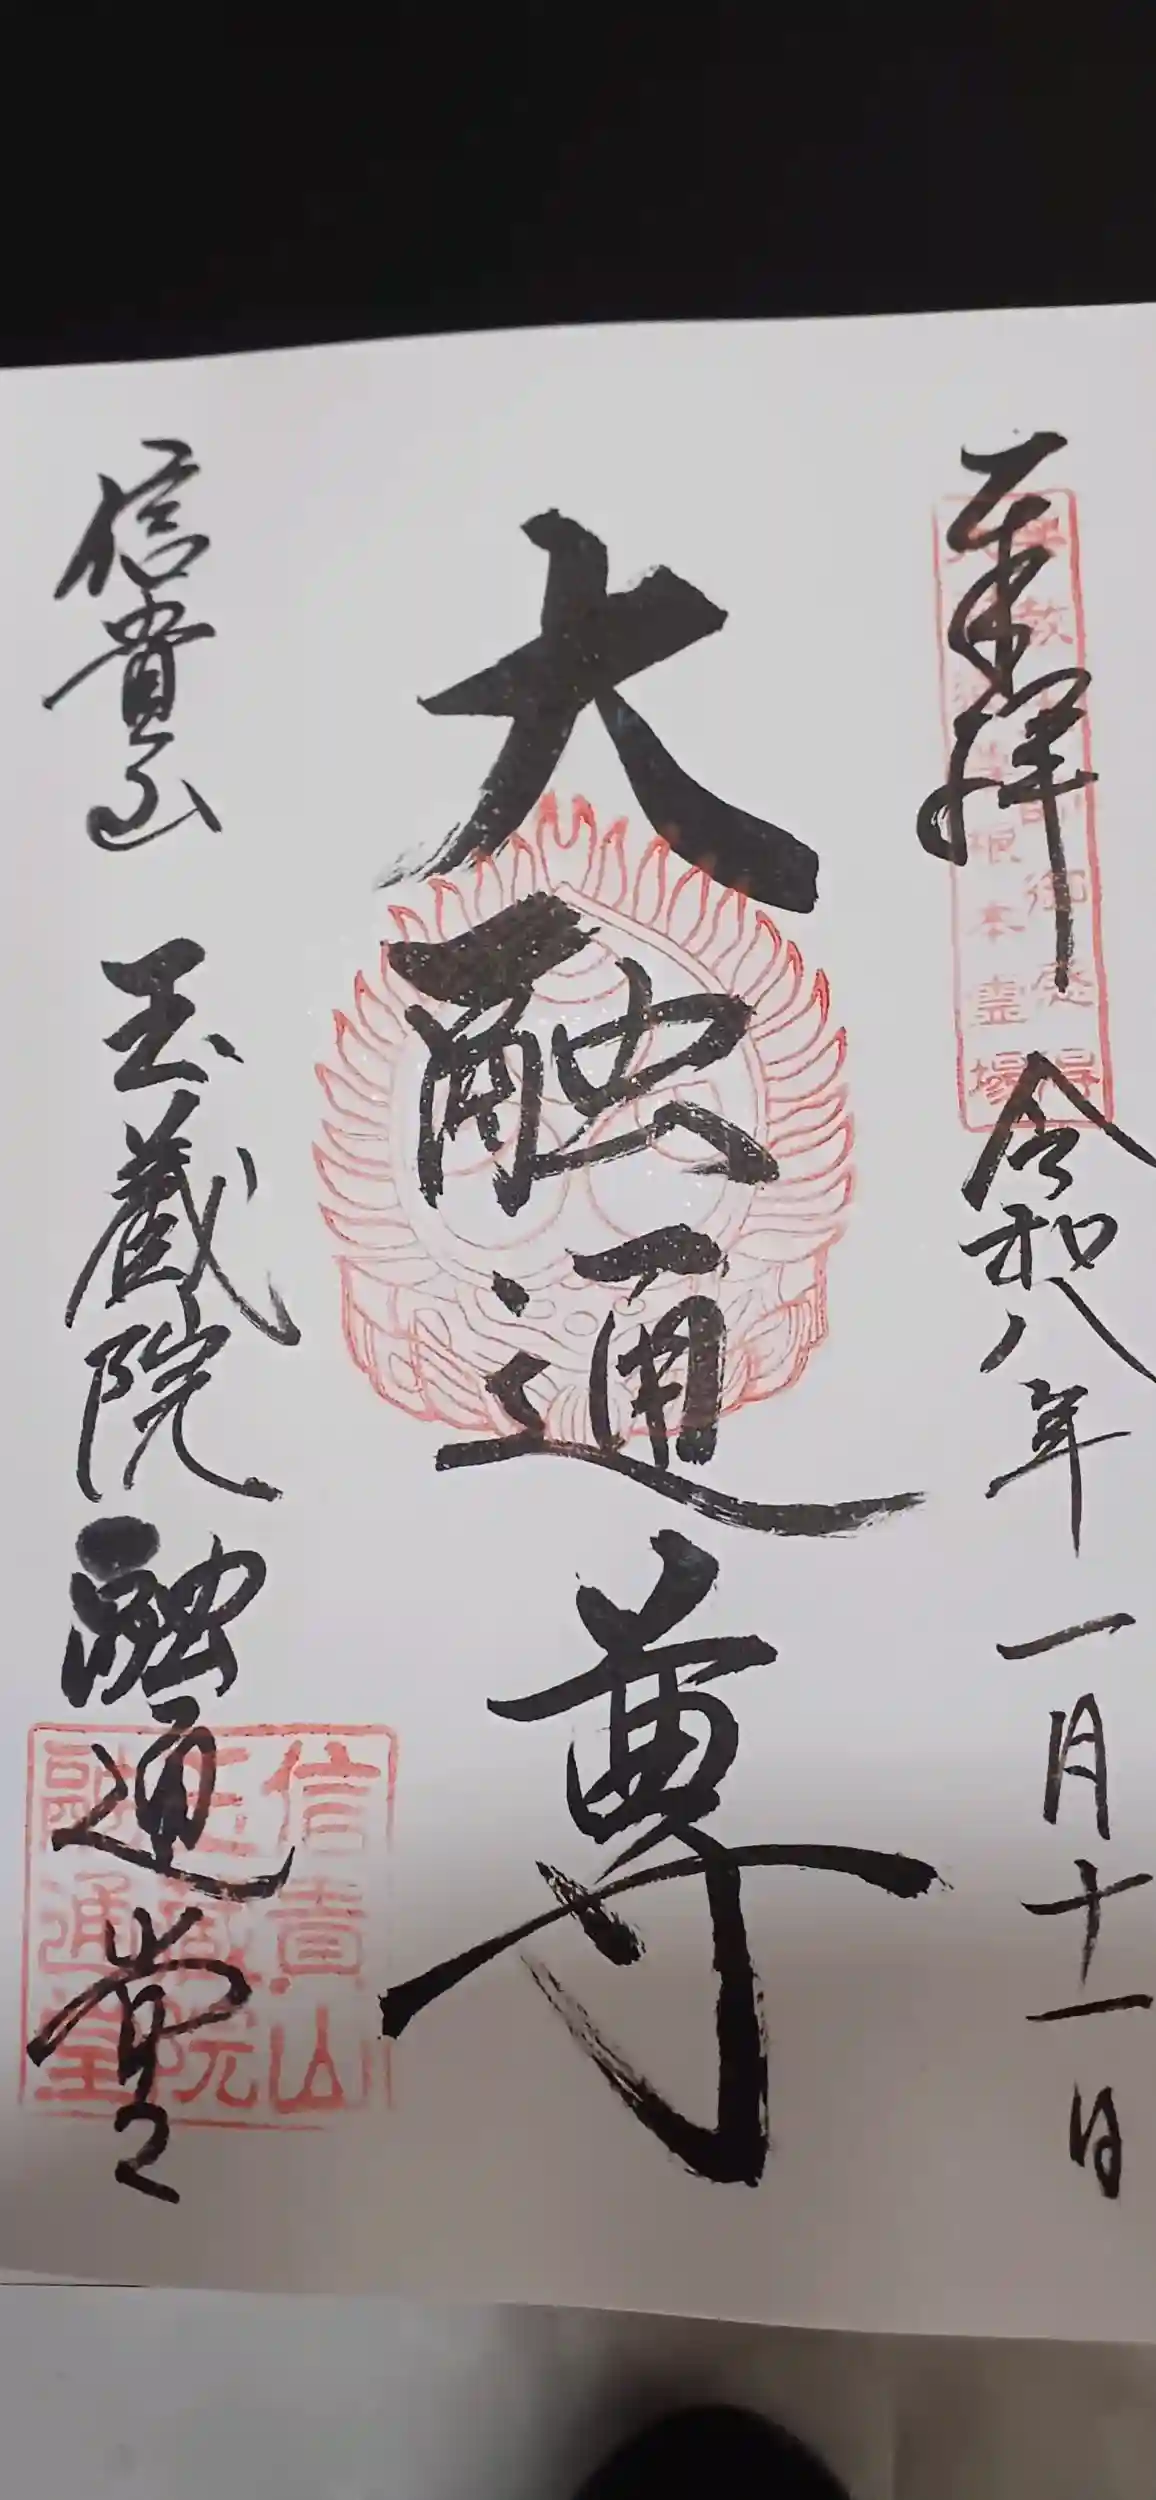 奉拝
令和八年一月十一日
大融通尊
信貴山 玉蔵院 融通堂
根本霊場
信貴山
玉蔵院
融通堂